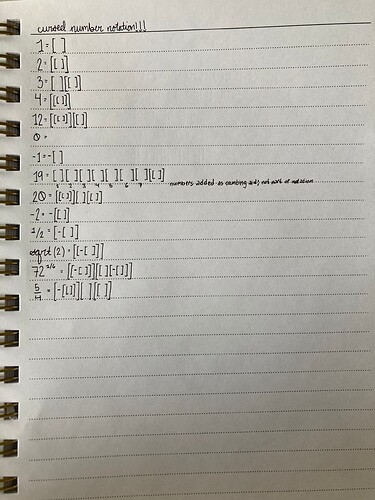 cursed number notation!!!
1 = [ ]
2 = [[ ]]
3 = [ ][[ ]]
4 = [[[ ]]]
12 = [[[ ]]][[ ]]
0 =
-1 = -[ ]
19 = [ ][ ][ ][ ][ ][ ][ ][[ ]]
1 2 3 4 5 6 7 numbers added as counting aid; not part of notation
20 = [[[ ]]][ ][[ ]]
-2 = -[[ ]]
1/2 = [-[ ]]
sqrt(2) = [[-[ ]]]
72^1/6 = [[-[ ]]][[ ][-[ ]]]
5/4 = [-[[ ]]][ ][[ ]]